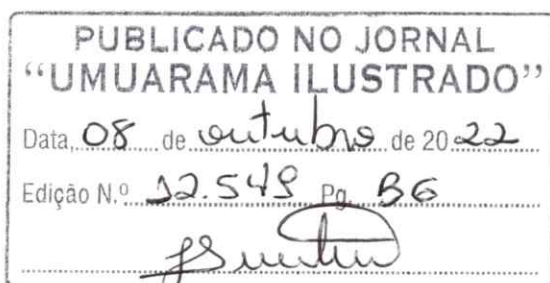 PUBLICADO NO JORNAL
“UMUARAMA ILUSTRADO”
Data, 08 de outubro de 20 22
Edição N.º 12.549 Pg. B6